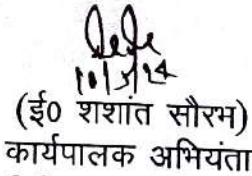 10/5/24
(ई० शशांत सौरभ)
कार्यपालक अभियंता